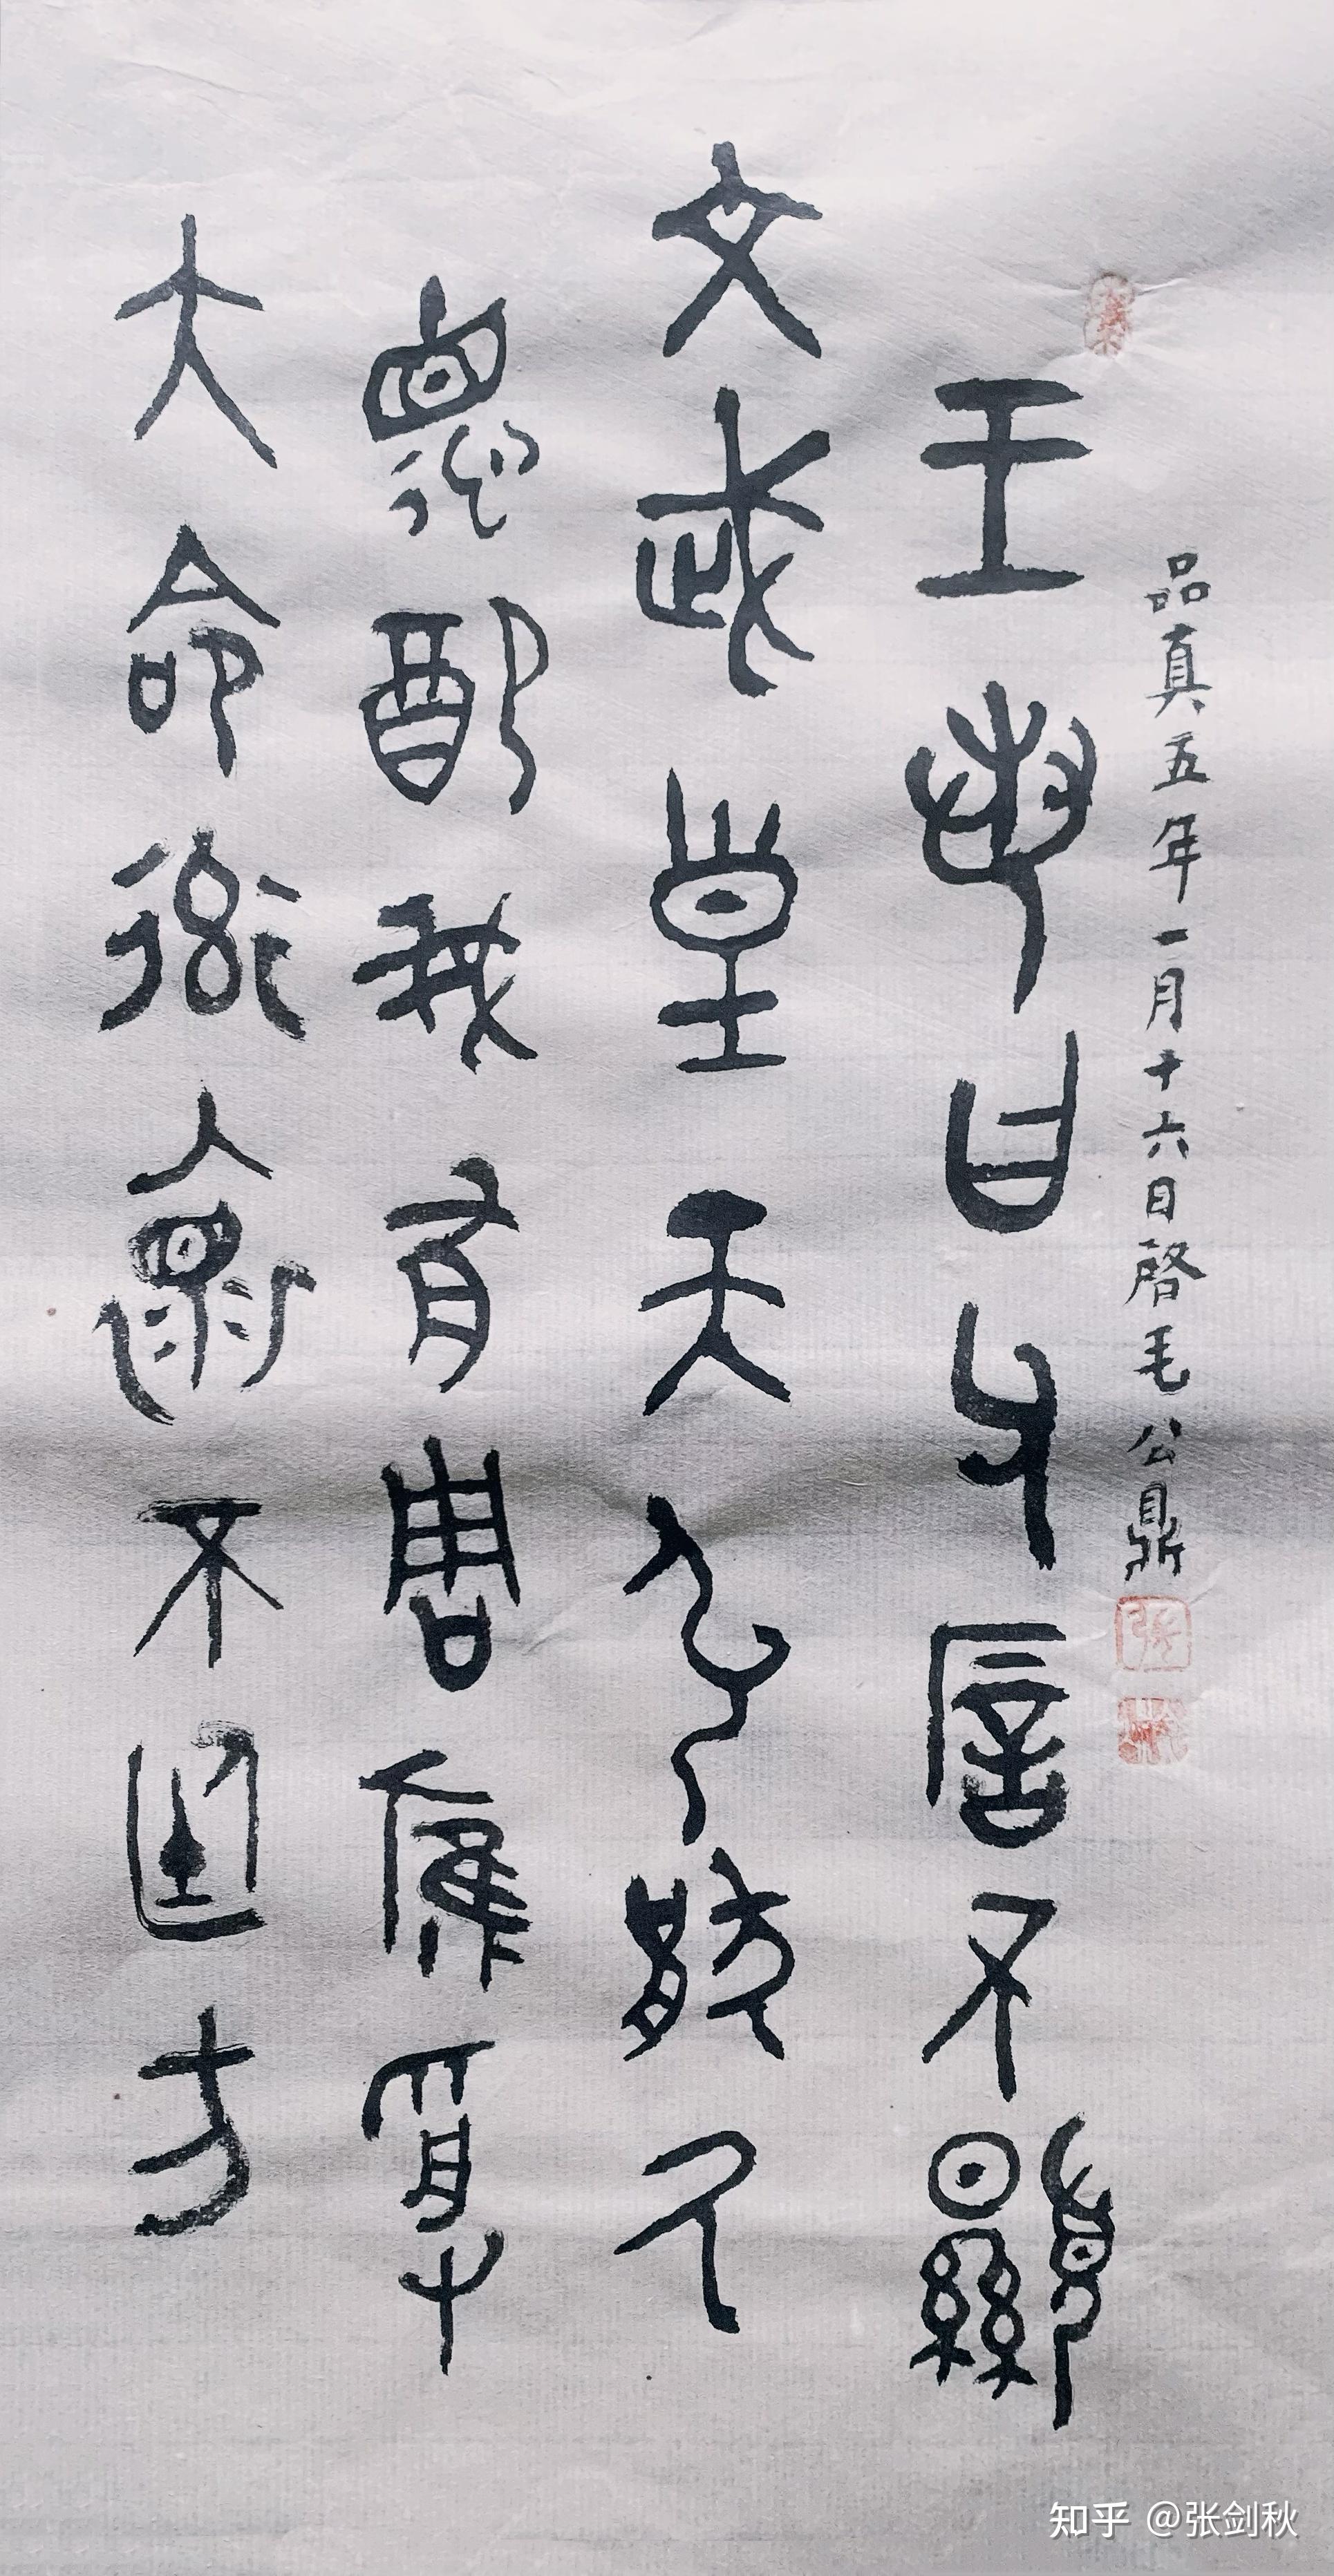 品真五年一月十六日啓毛公鼎
王若曰父不顯
文武皇天引猒氒
德配我有周膺受
大命率褱不廷方
知乎 @张剑秋